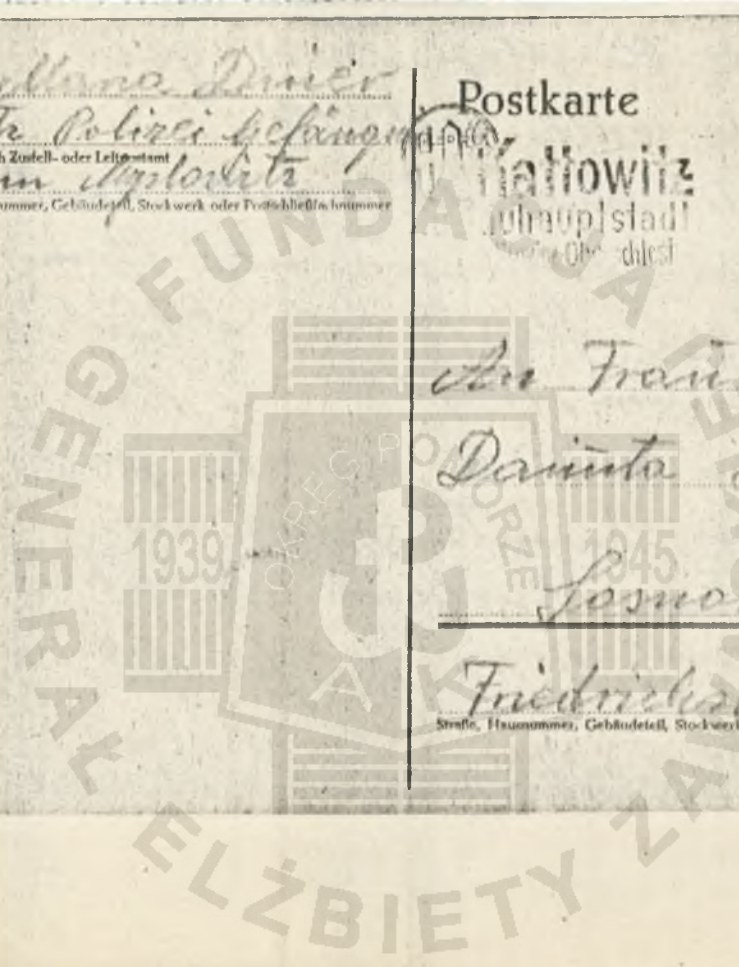 Polizei Gefängn
h Zustell- oder Leitpostamt
in Myslowitz
ummer, Gebäudeteil, Stockwerk oder Postschließfachnummer
Postkarte
Kattowitz
uhauptstadt
An Frau
Danuta
Sosno
Friedrichs
Straße, Hausnummer, Gebäudeteil, Stockwerk
FUNDACJA
GENERAŁ ELŻBIETY ZA
OKRĘG POMORZE
1939
1945
AK